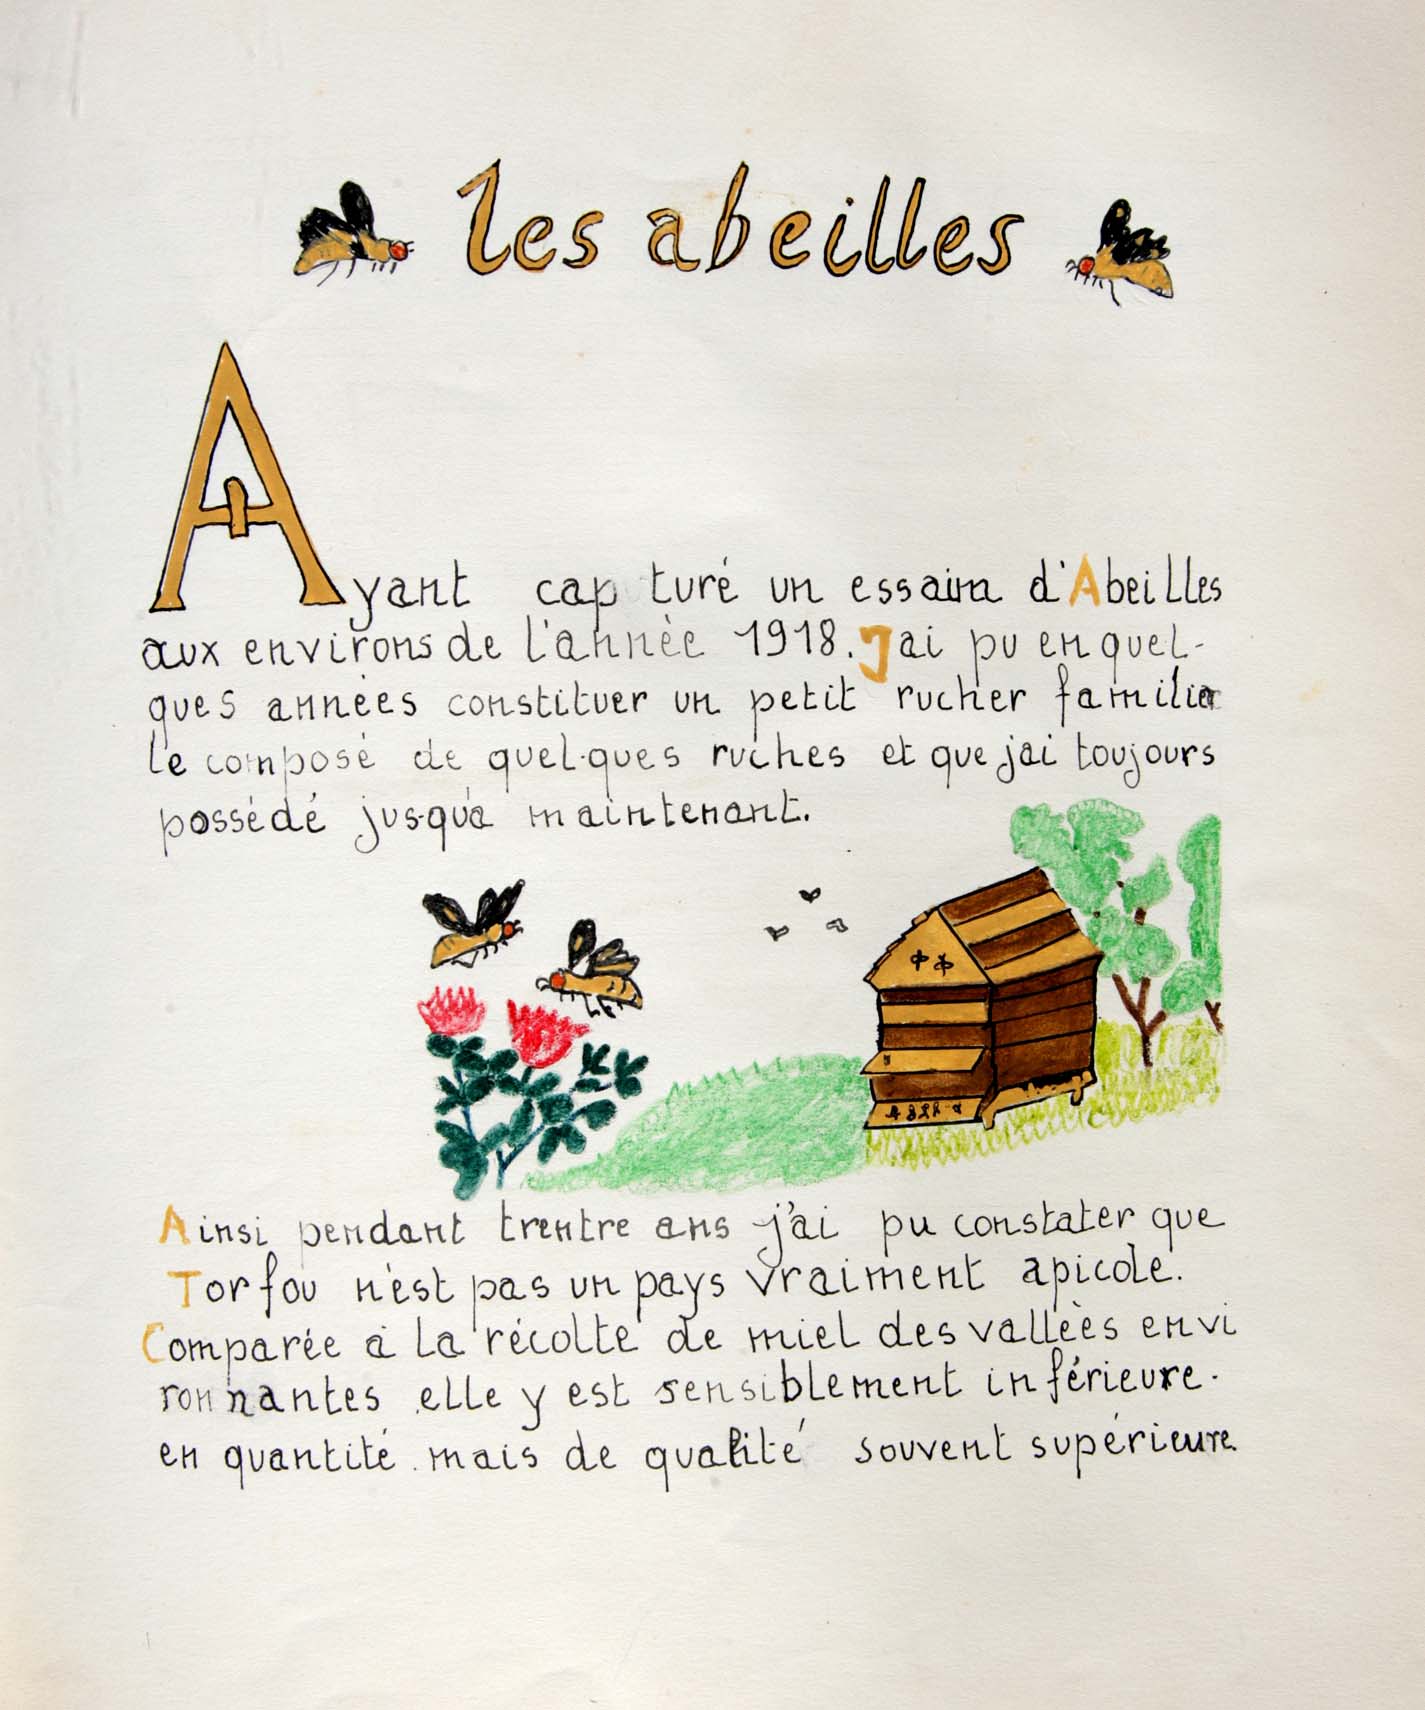 les abeilles
Ayant capturé un essaim d'Abeilles
aux environs de l'année 1918. Jai pu en quel-
ques années constituer un petit rucher familia
le composé de quel-ques ruches et que jai toujours
possédé jusqu'a maintenant.
Ainsi pendant trentre ans j'ai pu constater que
Torfou n'est pas un pays vraiment apicole.
Comparée à la récolte de miel des vallèès envi
ronnantes elle y est sensiblement inférieure.
en quantité. mais de qualité souvent supérieure.